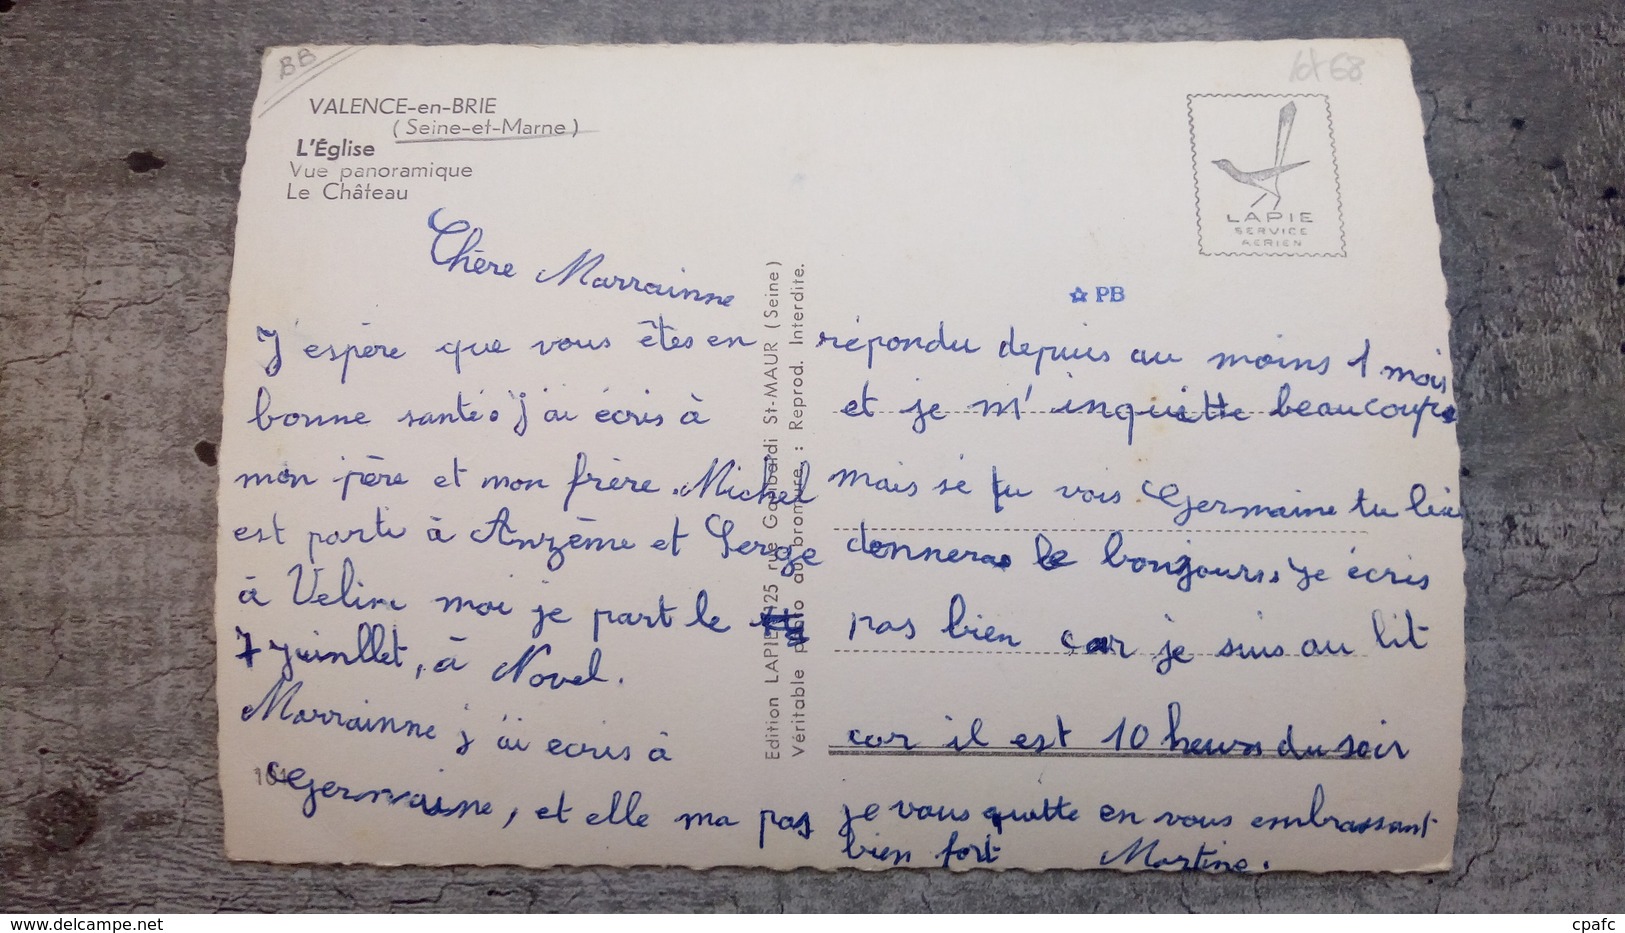 BB
lot 68
VALENCE-en-BRIE
(Seine-et-Marne)
L'Église
Vue panoramique
Le Château
LAPIE
SERVICE
AERIEN
☆ PB
Chère Marrainne
J'espère que vous êtes en
bonne santé. j'ai écris à
mon père et mon frère. Michel
est parti à Anzème et Serge
à Velin moi je part le
7 juinllet, à Novel.
Marrainne j'ai ecris à
Germaine, et elle ma pas
répondu depuis au moins 1 mois
et je m'inquiette beaucoup.
mais sé tu vois Germaine tu lui
donneras le bonjours. je écris
pas bien car je suis au lit
car il est 10 heures du soir
je vous quitte en vous embrassant
bien fort Martine.
Edition LAPIE 125 rue Garibaldi St-MAUR (Seine)
Véritable photo au bromure : Reprod. Interdite.
cpafc
www.delcampe.net